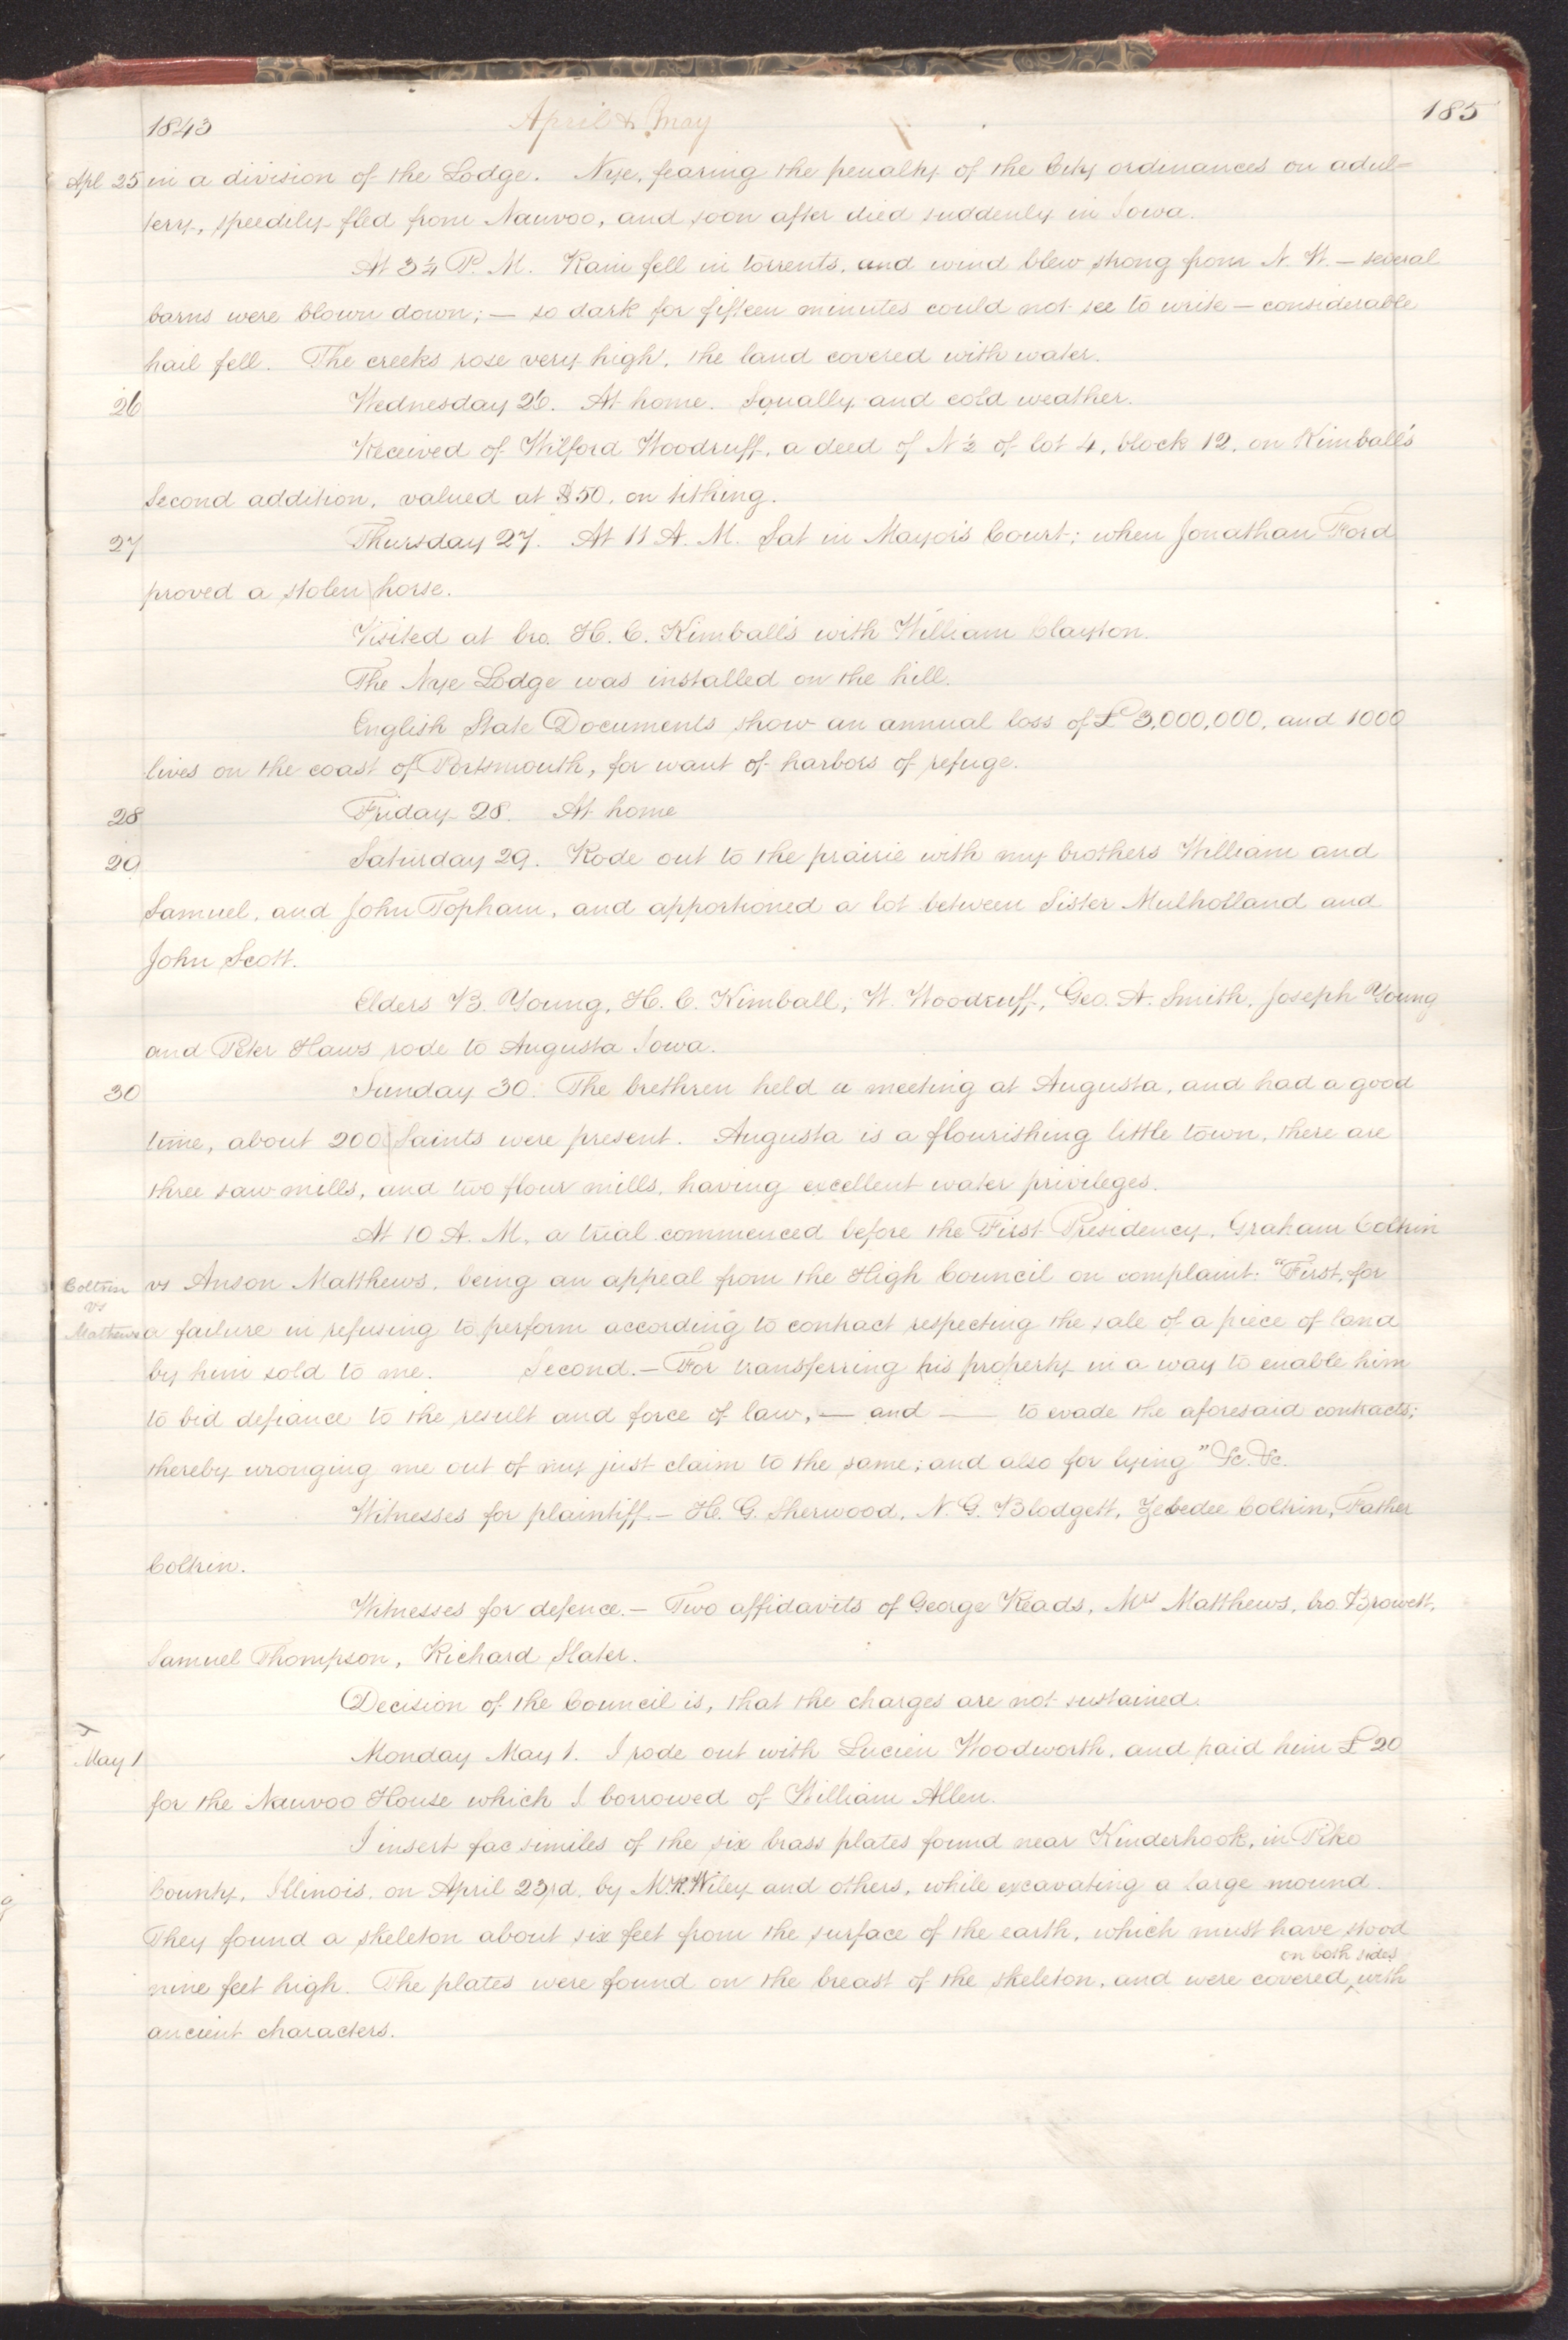 1843 April & May 185
Apl 25 in a division of the Lodge. Nye, fearing the penalty of the City ordinances on adul=
tery, speedily fled from Nauvoo, and soon after died suddenly in Iowa.
At 3¼ P. M. Rain fell in torrents, and wind blew strong from N. W. — several
barns were blown down; — so dark for fifteen minutes could not see to write — considerable
hail fell. The creeks rose very high, the land covered with water.
26 Wednesday 26. At home. Squally and cold weather.
Received of Wilford Woodruff, a deed of N ½ of lot 4, block 12, on Kimball's
Second addition, valued at $50, on tithing.
27 Thursday 27. At 11 A. M. Sat in Mayor's Court; when Jonathan Ford
proved a stolen horse.
Visited at bro. H. C. Kimball's with William Clayton.
The Nye Lodge was installed on the hill.
English State Documents show an annual loss of £3,000,000, and 1000
lives on the coast of Portsmouth, for want of harbors of refuge.
28 Friday 28. At home
29 Saturday 29. Rode out to the prairie with my brothers William and
Samuel, and John Topham, and apportioned a lot between Sister Mulholland and
John Scott.
Elders B. Young, H. C. Kimball, W. Woodruff, Geo. A. Smith, Joseph Young
and Peter Haws rode to Augusta Iowa.
30 Sunday 30. The brethren held a meeting at Augusta, and had a good
time, about 200 Saints were present. Augusta is a flourishing little town, there are
three saw mills, and two flour mills, having excellent water privileges.
At 10 A. M., a trial commenced before the First Presidency, Graham Coltrin
Coltrin vs Mathews vs Anson Matthews, being an appeal from the High Council on complaint: "First, for
a failure in refusing to perform according to contract respecting the sale of a piece of land
by him sold to me. Second. — For transferring his property in a way to enable him
to bid defiance to the result and force of law, — and — to evade the aforesaid contracts;
thereby wronging me out of my just claim to the same; and also for lying" &c. &c.
Witnesses for plaintiff. — H. G. Sherwood, N. G. Blodgett, Zebedee Coltrin, Father
Coltrin.
Witnesses for defence. — Two affidavits of George Reads, Mrs Matthews, bro. Browett,
Samuel Thompson, Richard Slater.
Decision of the Council is, that the charges are not sustained.
May 1 Monday May 1. I rode out with Lucien Woodworth, and paid him £20
for the Nauvoo House which I borrowed of William Allen.
I insert fac similes of the six brass plates found near Kinderhook, in Pike
County, Illinois, on April 23rd, by Mr. R. Wiley and others, while excavating a large mound.
They found a skeleton about six feet from the surface of the earth, which must have stood
on both sides
nine feet high. The plates were found on the breast of the skeleton, and were covered ‸ with
ancient characters.